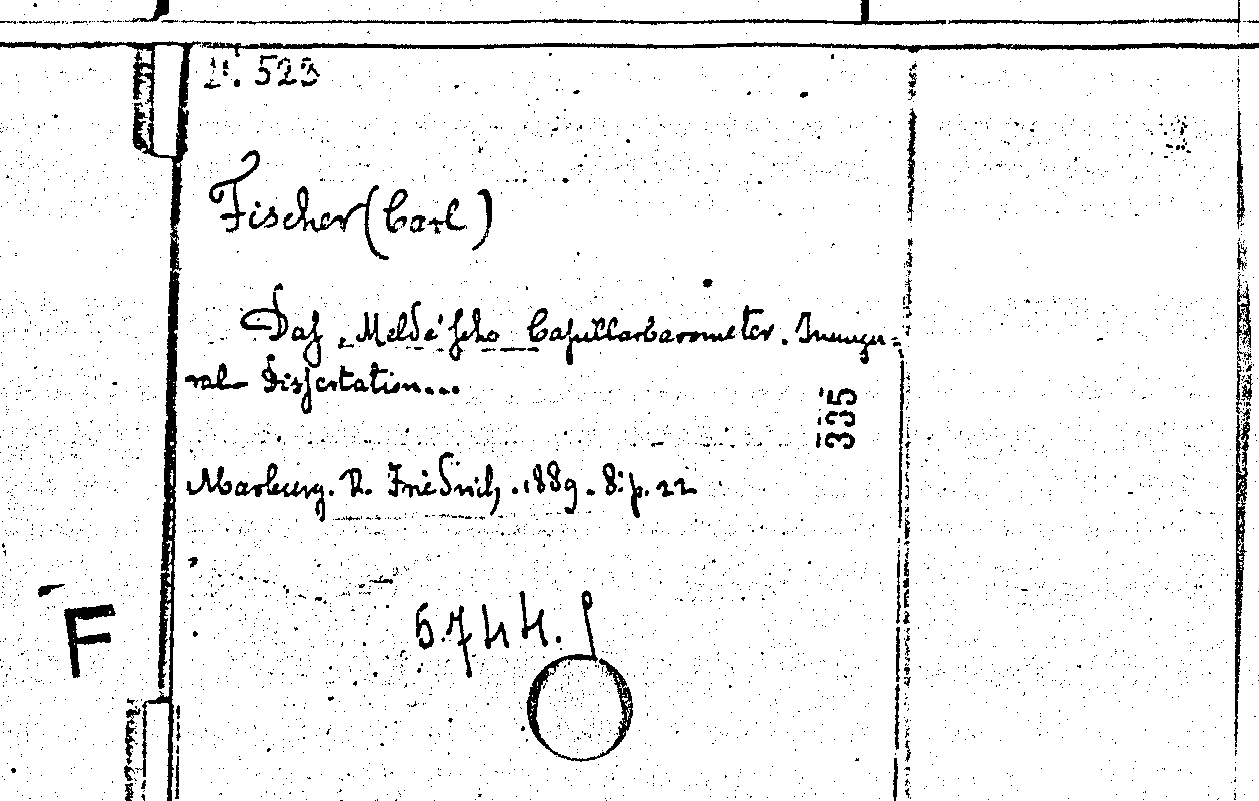 N. 523
Fischer (Carl)
Das „Melde'sche Capillarbarometer. Inaugu-
ral- Dissertation...
335
Marburg. R. Friedrich. 1889. 8: p. 22
F
6744.